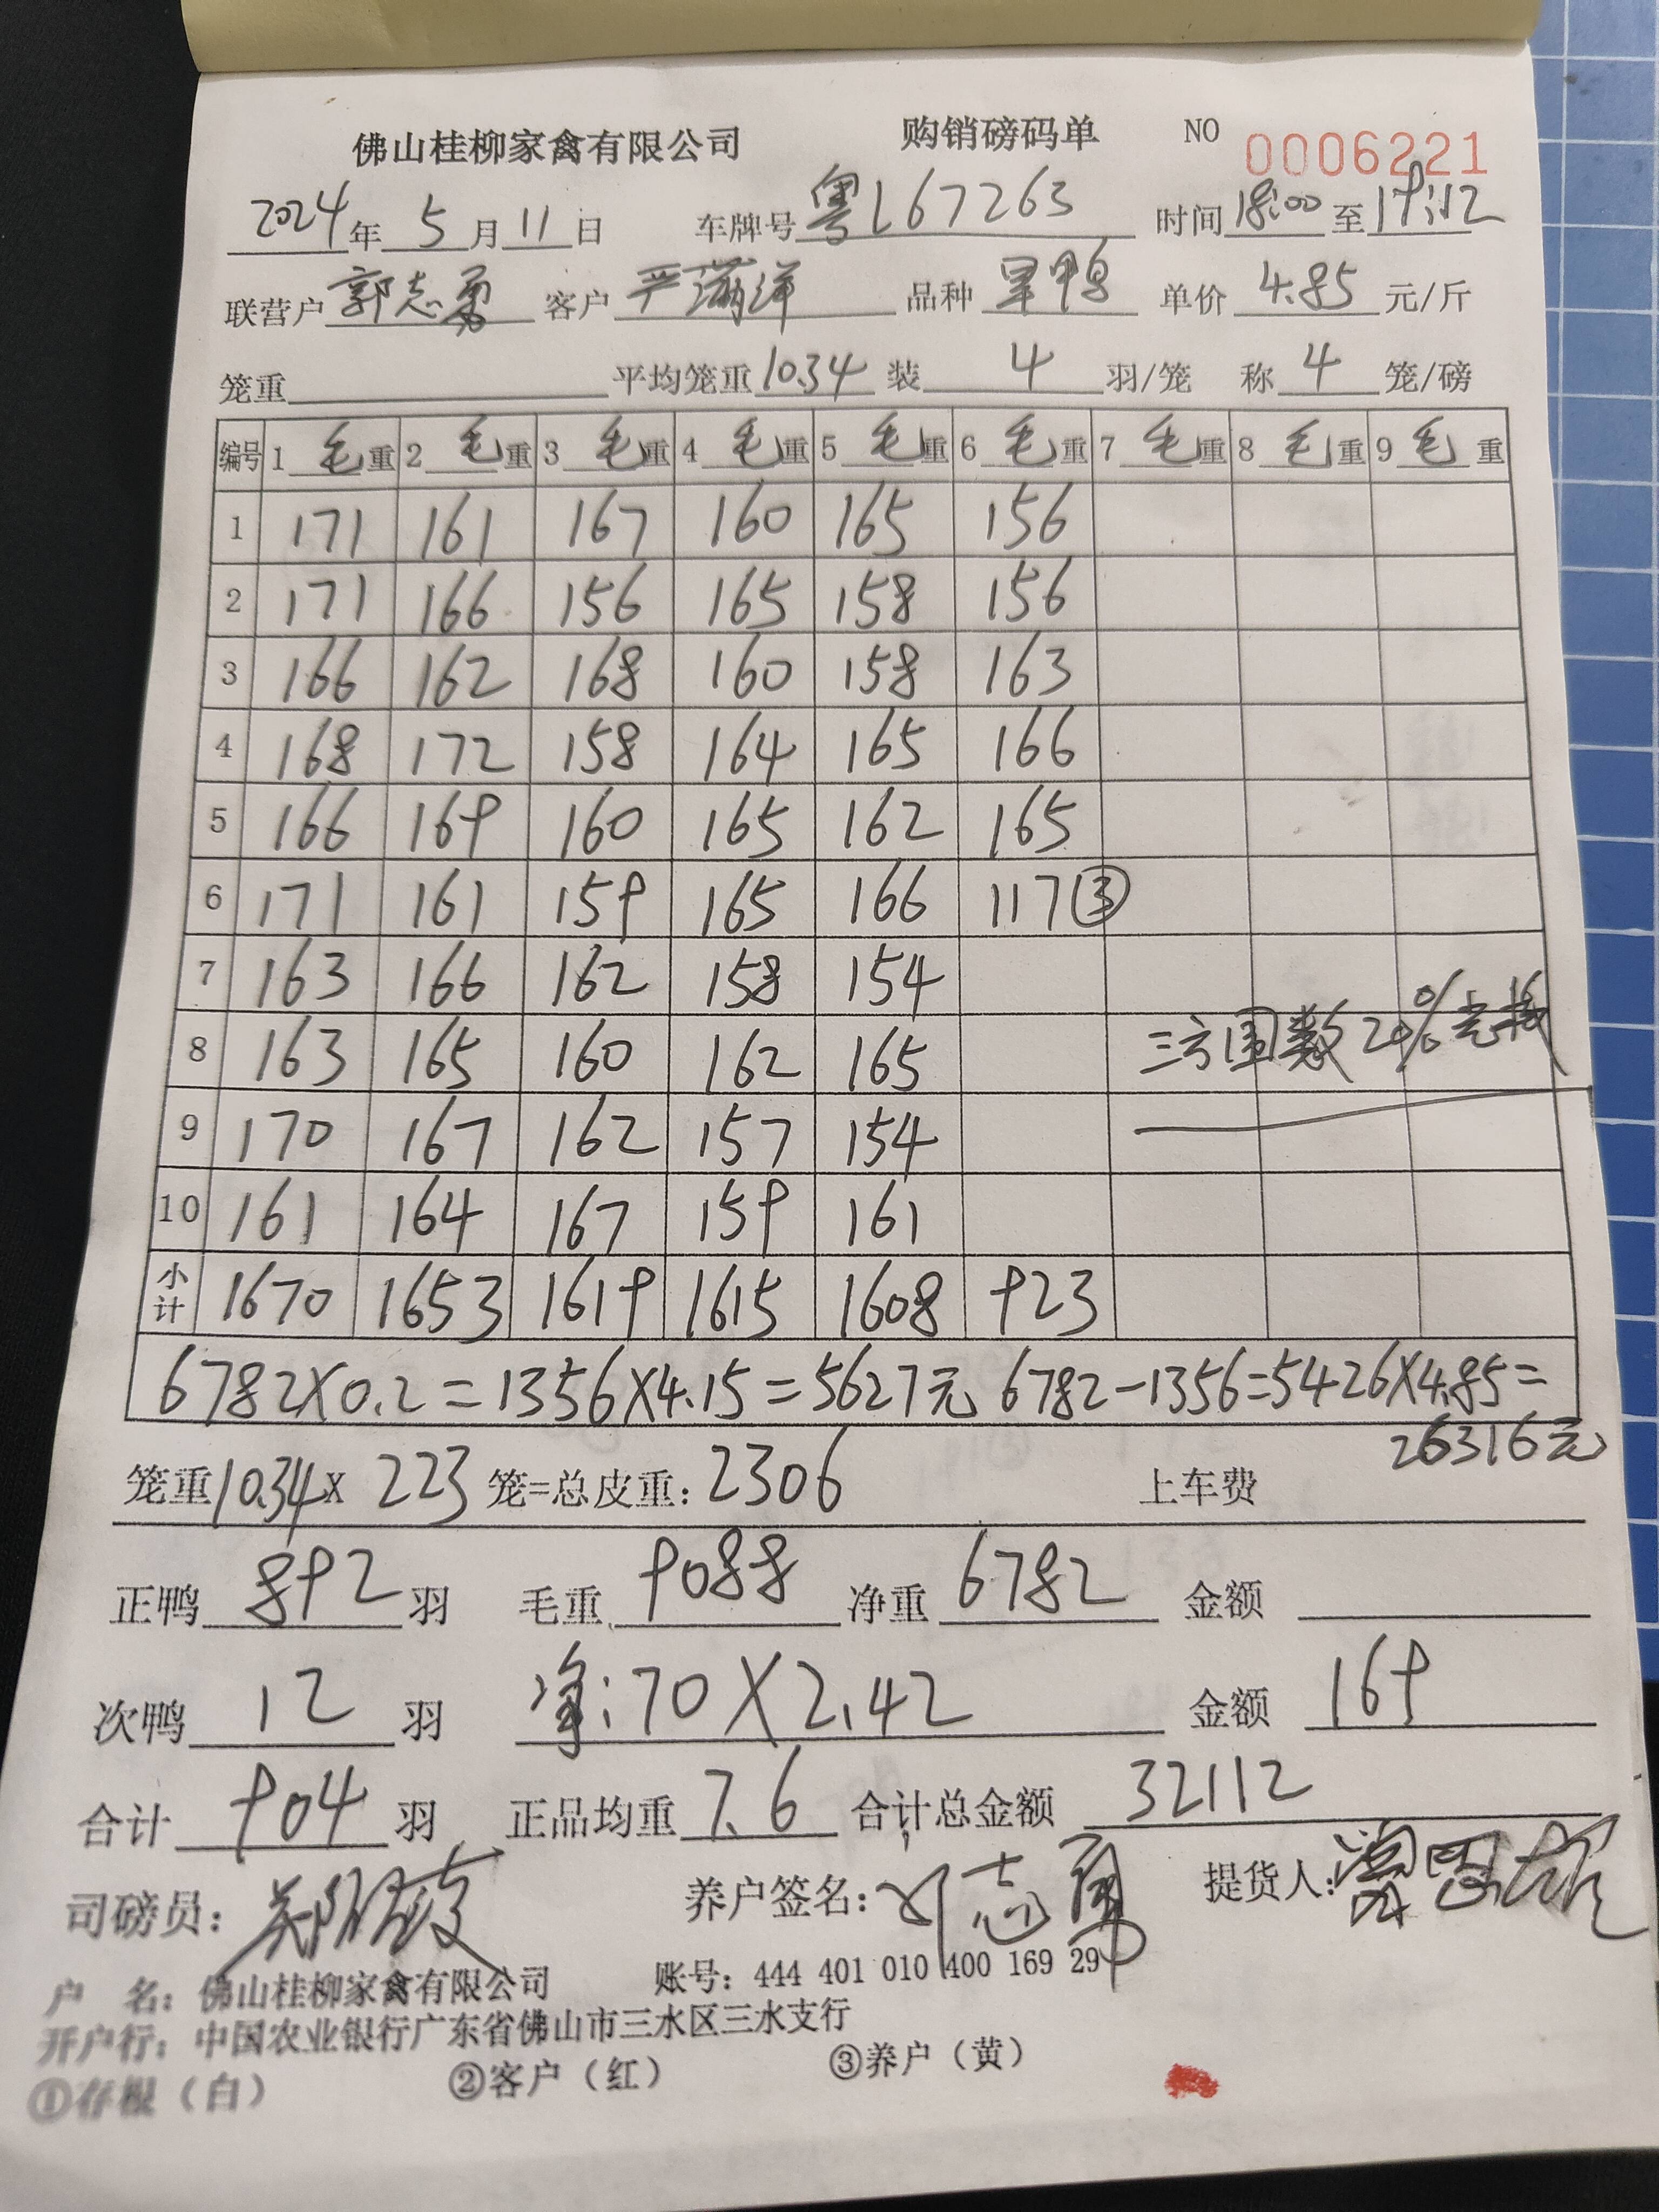 佛山桂柳家禽有限公司 购销磅码单 NO 0006221
2024年 5月11日 车牌号 粤L67263 时间 18:00 至 19:12
联营户 郭志勇 客户 严满洋 品种 旱鸭 单价 4.85 元/斤
笼重 平均笼重 10.34 装 4 羽/笼 称 4 笼/磅
编号 1 毛重 2 毛重 3 毛重 4 毛重 5 毛重 6 毛重 7 毛重 8 毛重 9 毛重
1 171 161 167 160 165 156
2 171 166 156 165 158 156
3 166 162 168 160 158 163
4 168 172 158 164 165 166
5 166 169 160 165 162 165
6 171 161 159 165 166 117③
7 163 166 162 158 154
8 163 165 160 162 165
三方围数20%
9 170 167 162 157 154
10 161 164 167 159 161
小计 1670 1653 1619 1615 1608 923
6782×0.2=1356×4.15=5627元 6782-1356=5426×4.85=
26316元
笼重 10.34× 223 笼=总皮重: 2306 上车费
正鸭 892 羽 毛重 9088 净重 6782 金额
次鸭 12 羽 净:70×2.42 金额 169
合计 904 羽 正品均重 7.6 合计总金额 32112
司磅员: 养户签名: 志勇 提货人:
户 名: 佛山桂柳家禽有限公司 账号: 444 401 010 400 169 29
开户行: 中国农业银行广东省佛山市三水区三水支行
①存根(白) ②客户(红) ③养户(黄)